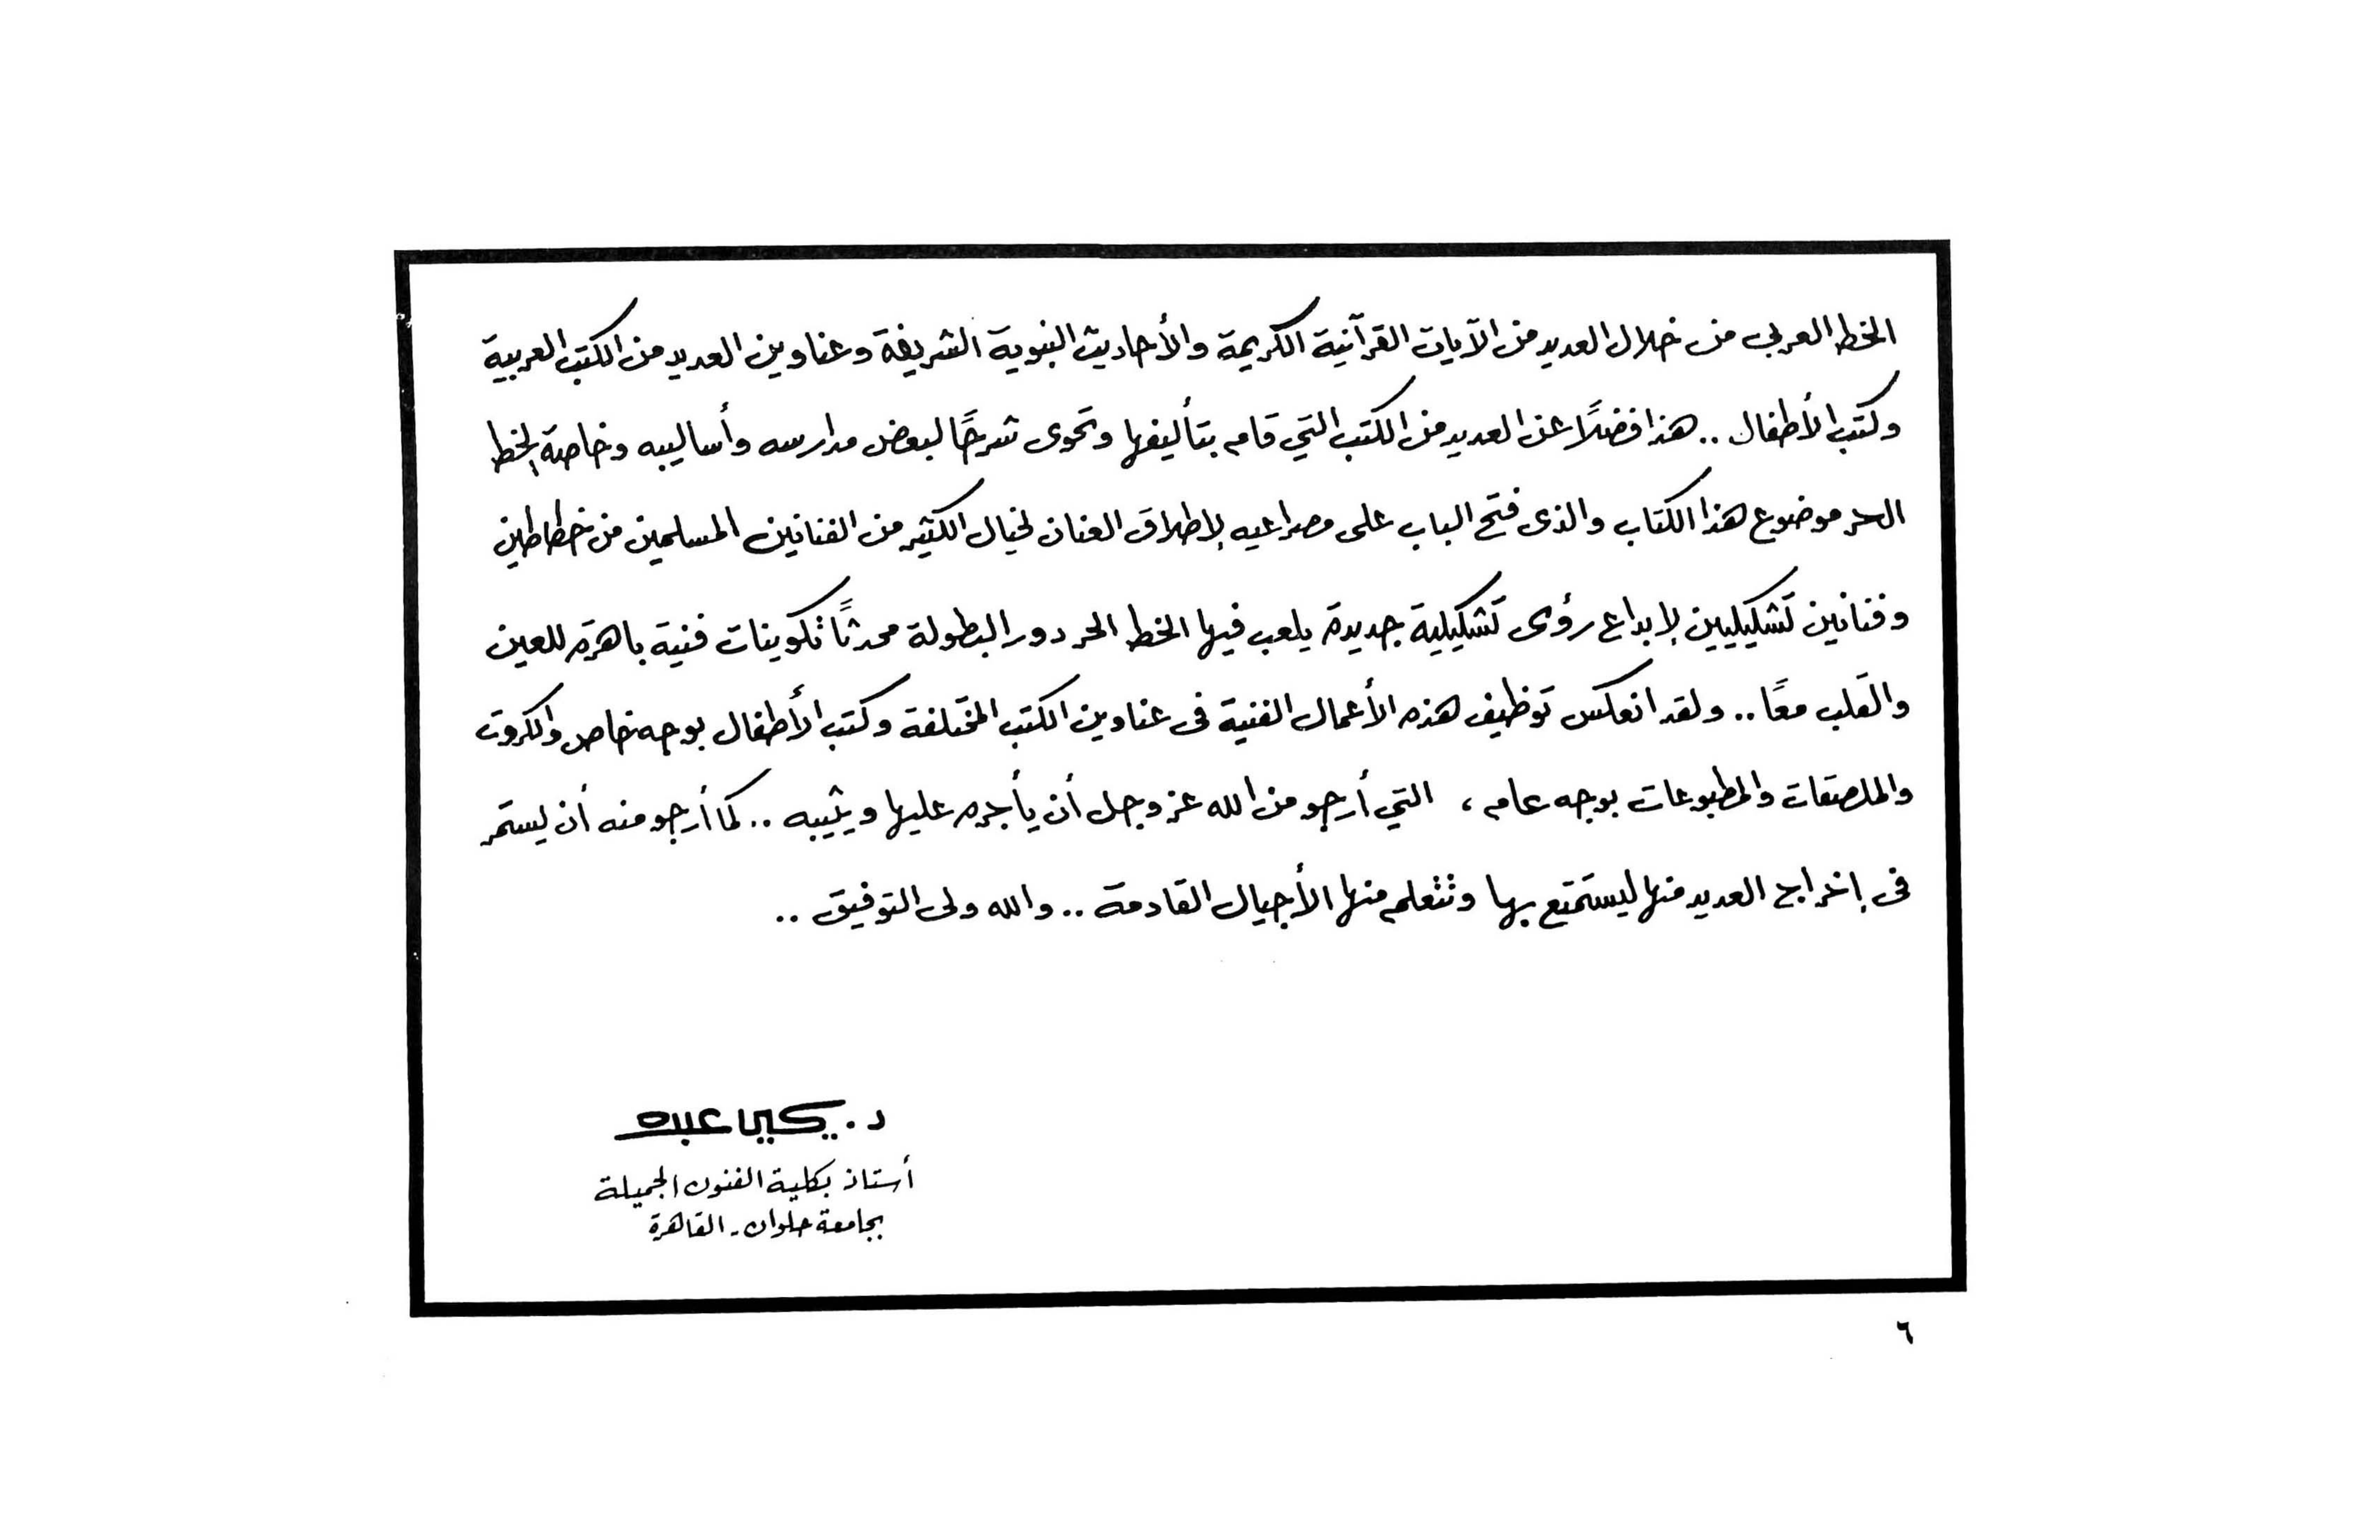 الخط العربي من خلال العديد من الآيات القرآنية الكريمة والأحاديث النبوية الشريفة وعناوين العديد من الكتب العربية
وكتب الأطفال .. هذا فضلًا عن العديد من الكتب التي قام بتأليفها وتحوى شرحًا لبعض مدارسه وأساليبه وخاصة الخط
الحر موضوع هذا الكتاب والذى فتح الباب على مصراعيه لإطلاق العنان لخيال الكثير من الفنانين المسلمين من خطاطين
وفنانين تشكيليين لإبداع رؤى تشكيلية جديدة يلعب فيها الخط الحر دور البطولة محدثًا تكوينات فنية باهرة للعين
والقلب معًا .. ولقد انعكس توظيف هذه الأعمال الفنية فى عناوين الكتب المختلفة وكتب الأطفال بوجه خاص والكروت
والملصقات والمطبوعات بوجه عام ، التي أرجو من الله عز وجل أن يأجره عليها ويثيبه .. كما أرجو منه أن يستمر
فى إخراج العديد منها ليستمتع بها وتتعلم منها الأجيال القادمة .. والله ولى التوفيق ..
د. يحيى عبده
أستاذ بكلية الفنون الجميلة
بجامعة حلوان - القاهرة
٦